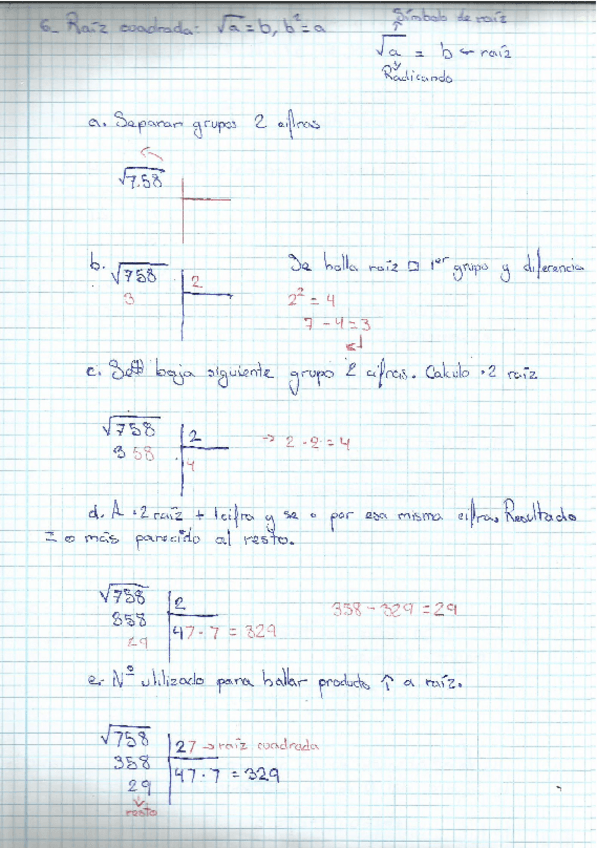 6_ Raíz cuadrada: √a = b, b² = a
Símbolo de raíz
√a = b ← raíz
Radicando
a. Separar grupos 2 cifras
√7.58
b. √758 2
3
Se halla raíz □ 1er grupo y diferencia
2² = 4
7 - 4 = 3
c. Se baja siguiente grupo 2 cifras. Calculo ·2 raíz
√758 2 → 2 · 2 = 4
3 58 4
d. A ·2 raíz + 1 cifra y se · por esa misma cifra. Resultado
= o más parecido al resto.
√758 2
358 47 · 7 = 329
29
358 - 329 = 29
e. Nº utilizado para hallar producto ↑ a raíz.
√758 27 → raíz cuadrada
358 47 · 7 = 329
29
resto